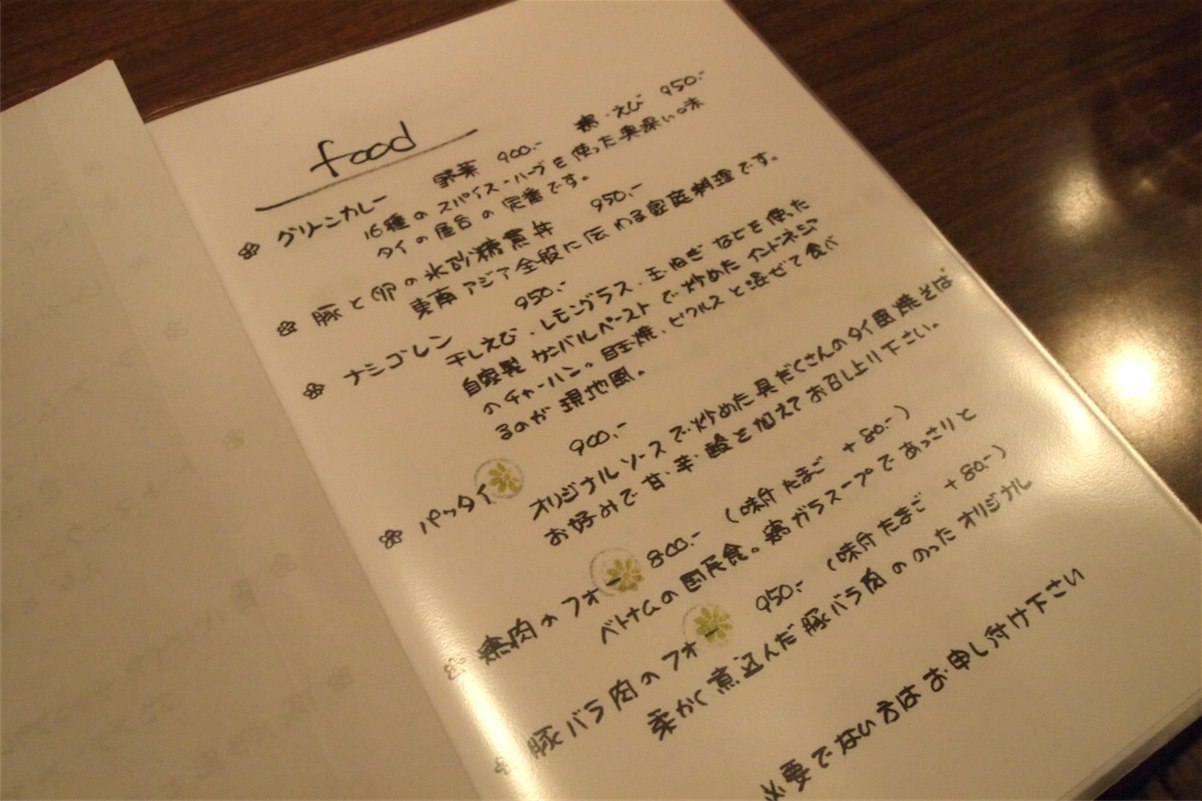 food
グリーンカレー 野菜 900.- 鶏・えび 950.-
16種のスパイス・ハーブを使った奥深い味
タイの屋台の定番です。
豚と卵の氷砂糖煮丼 950.-
東南アジア全般に伝わる家庭料理です。
ナシゴレン 950.-
干しえび、レモングラス、玉ねぎなどを使った
自家製サンバルペーストで炒めたインドネシア
のチャーハン。目玉焼、ピクルスと混ぜて食べ
るのが現地風。
パッタイ 900.-
オリジナルソースで炒めた具だくさんのタイ風焼そば。
お好みで甘・辛・酸を加えてお召し上り下さい。
鶏肉のフォー 800.- (味付たまご +80.-)
ベトナムの国民食。鶏ガラスープであっさりと
豚バラ肉のフォー 950.- (味付たまご +80.-)
柔かく煮込んだ豚バラ肉ののったオリジナル
必要でない方はお申し付け下さい